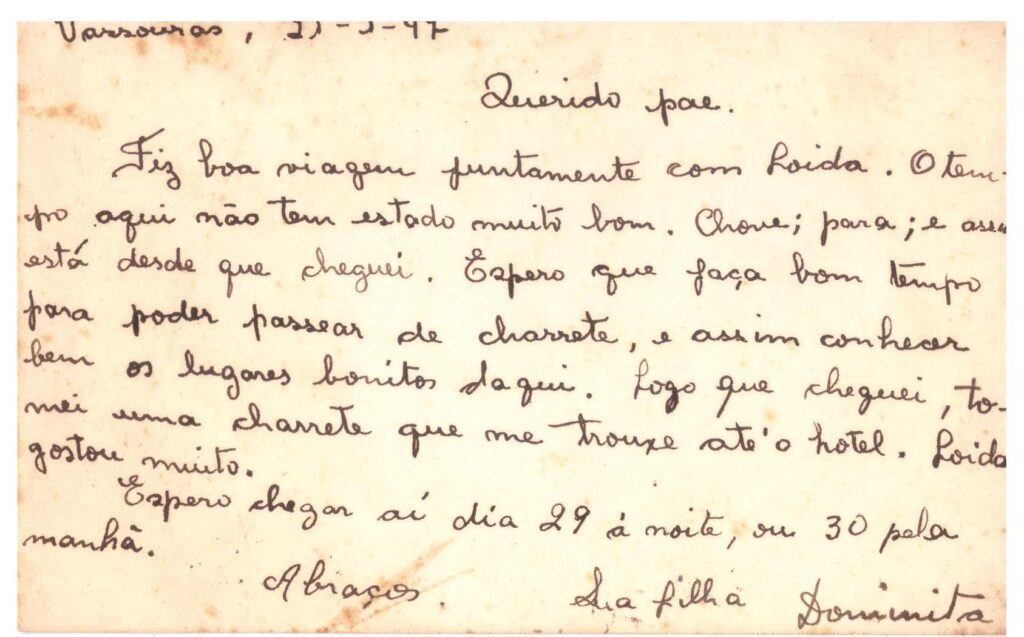 Vassouras,
Querido pae.
Fiz boa viagem juntamente com Loida. O tem-
po aqui não tem estado muito bom. Chove; para; e
está desde que cheguei. Espero que faça bom tempo
para poder passear de charrete, e assim conhecer
bem os lugares bonitos daqui. Logo que cheguei, to-
mei uma charrete que me trouxe até o hotel. Loida
gostou muito.
Espero chegar aí dia 29 á noite, ou 30 pela
manhã.
Abraços.
Sua filha Dominita